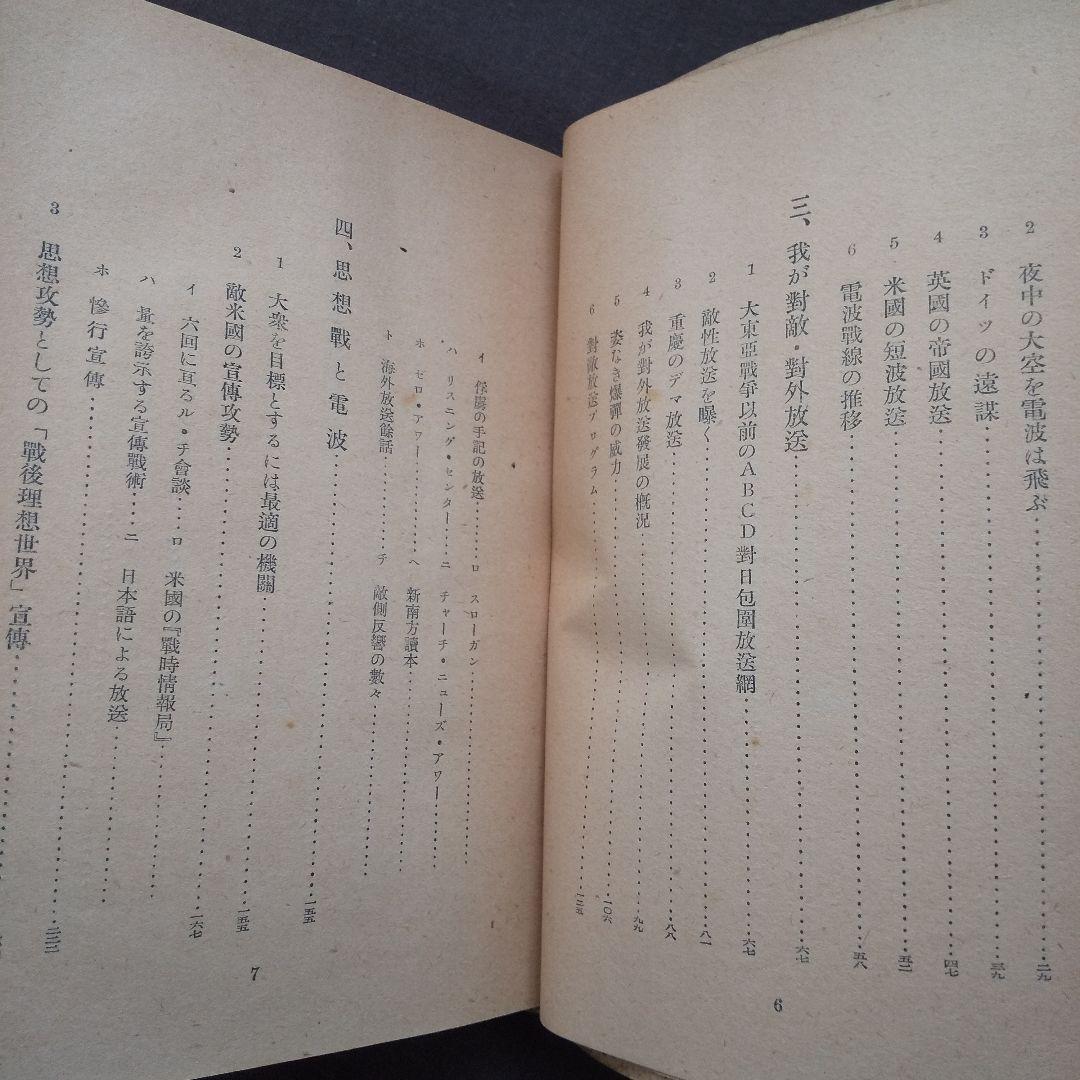 2 夜中の大空を電波は飛ぶ……二九
3 ドイツの遠謀……三九
4 英國の帝國放送……四七
5 米國の短波放送……五二
6 電波戰線の推移……五八
三、我が對敵・對外放送……六七
1 大東亞戰爭以前のABCD對日包圍放送網……六七
2 敵性放送を曝く……八一
3 重慶のデマ放送……八八
4 我が對外放送發展の槪況……九九
5 姿なき爆彈の威力……一〇六
6 對敵放送プログラム……一二五
6
イ 俘虜の手記の放送……ロ スローガン……
ハ リスニング・センター……ニ チャーチ・ニューズ・アワー……
ホ ゼロ・アワー……ヘ 新南方讀本……
ト 海外放送餘話……チ 敵側反響の數々……
四、思想戰と電波……一五五
1 大衆を目標とするには最適の機關……一五五
2 敵米國の宣傳攻勢……一六七
イ 六回に亘るル・チ會談……ロ 米國の『戰時情報局』……
ハ 量を誇示する宣傳戰術……ニ 日本語による放送……
ホ 慘行宣傳……
3 思想攻勢としての「戰後理想世界」宣傳……
7